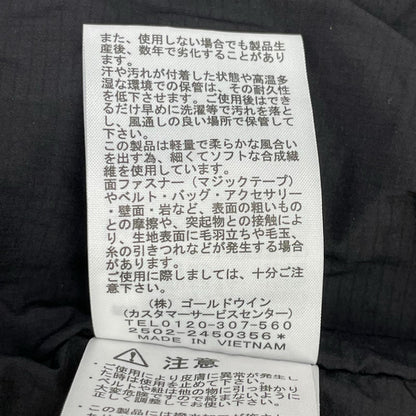 また、使用しない場合でも製品生
産後、数年で劣化することがあり
ます。
汗や汚れが付着した状態や高温多
湿な環境での保管は、その耐久性
を低下させます。ご使用後はでき
るだけ早めに洗濯等で汚れを落と
し、風通しの良い場所で保管して
ください。
この製品は軽量で柔らかな風合い
を出す為、細くてソフトな合成繊
維を使用しています。
面ファスナー（マジックテープ）
やベルト・バッグ・アクセサリー
・壁面・岩など、表面の粗いもの
との摩擦や、突起物との接触によ
り、生地表面に毛羽立ちや毛玉、
糸の引きつれなどが発生する場合
があります。
ご使用に際しましては、十分ご注
意下さい。
（株）ゴールドウイン
（カスタマーサービスセンター）
TEL0120-307-560
2502-2450356*
MADE IN VIETNAM
注意
使用により皮膚に異常が
た時は使用を止めて下さい
ベルトや紐は他の物に
大変危険です